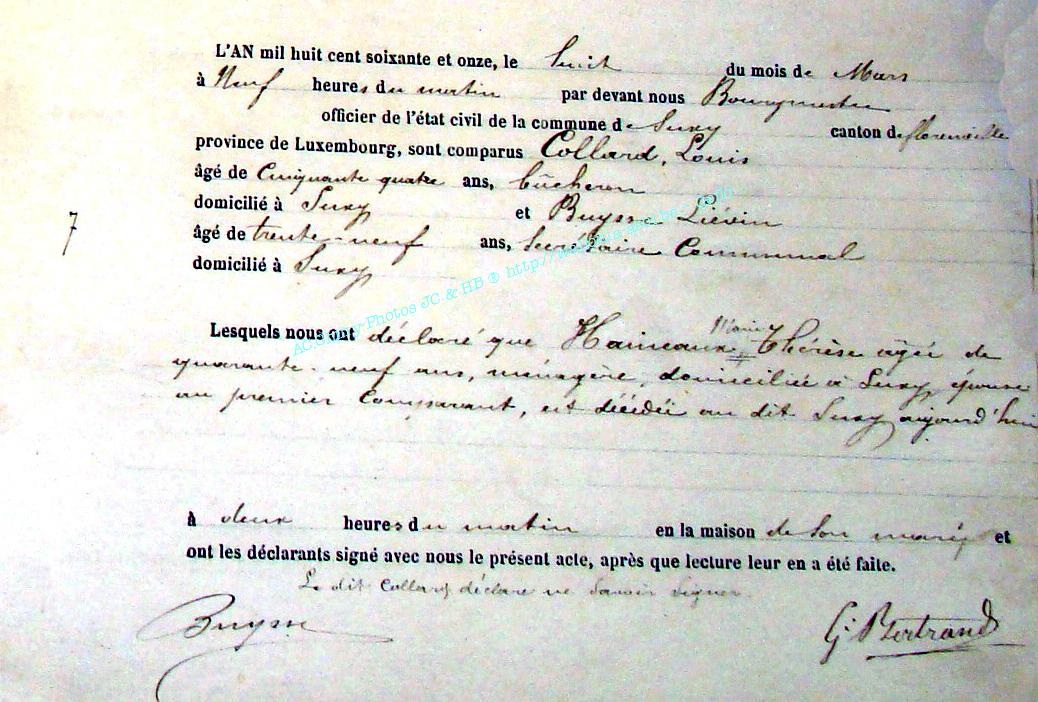 L'AN mil huit cent soixante et onze, le huit du mois de Mars
à Neuf heures du matin par devant nous Bourgmestre
officier de l'état civil de la commune de Suxy canton de florenville
province de Luxembourg, sont comparus Collard, Louis
âgé de Cinquante quatre ans, bûcheron
domicilié à Suxy et Buysse Liévin
7
âgé de trente-neuf ans, Secrétaire Communal
domicilié à Suxy
AC Photos JC & HB ® http://
Lesquels nous ont déclaré que Haineaux Marie Thérèse âgée de
quarante-neuf ans, ménagère, domiciliée à Suxy, épouse
au premier Comparant, est décédée au dit Suxy aujourd'hui
à deux heures du matin en la maison de son marié et
ont les déclarants signé avec nous le présent acte, après que lecture leur en a été faite.
Le dit Collard déclare ne Savoir Signer.
Buysse G. Bertrand